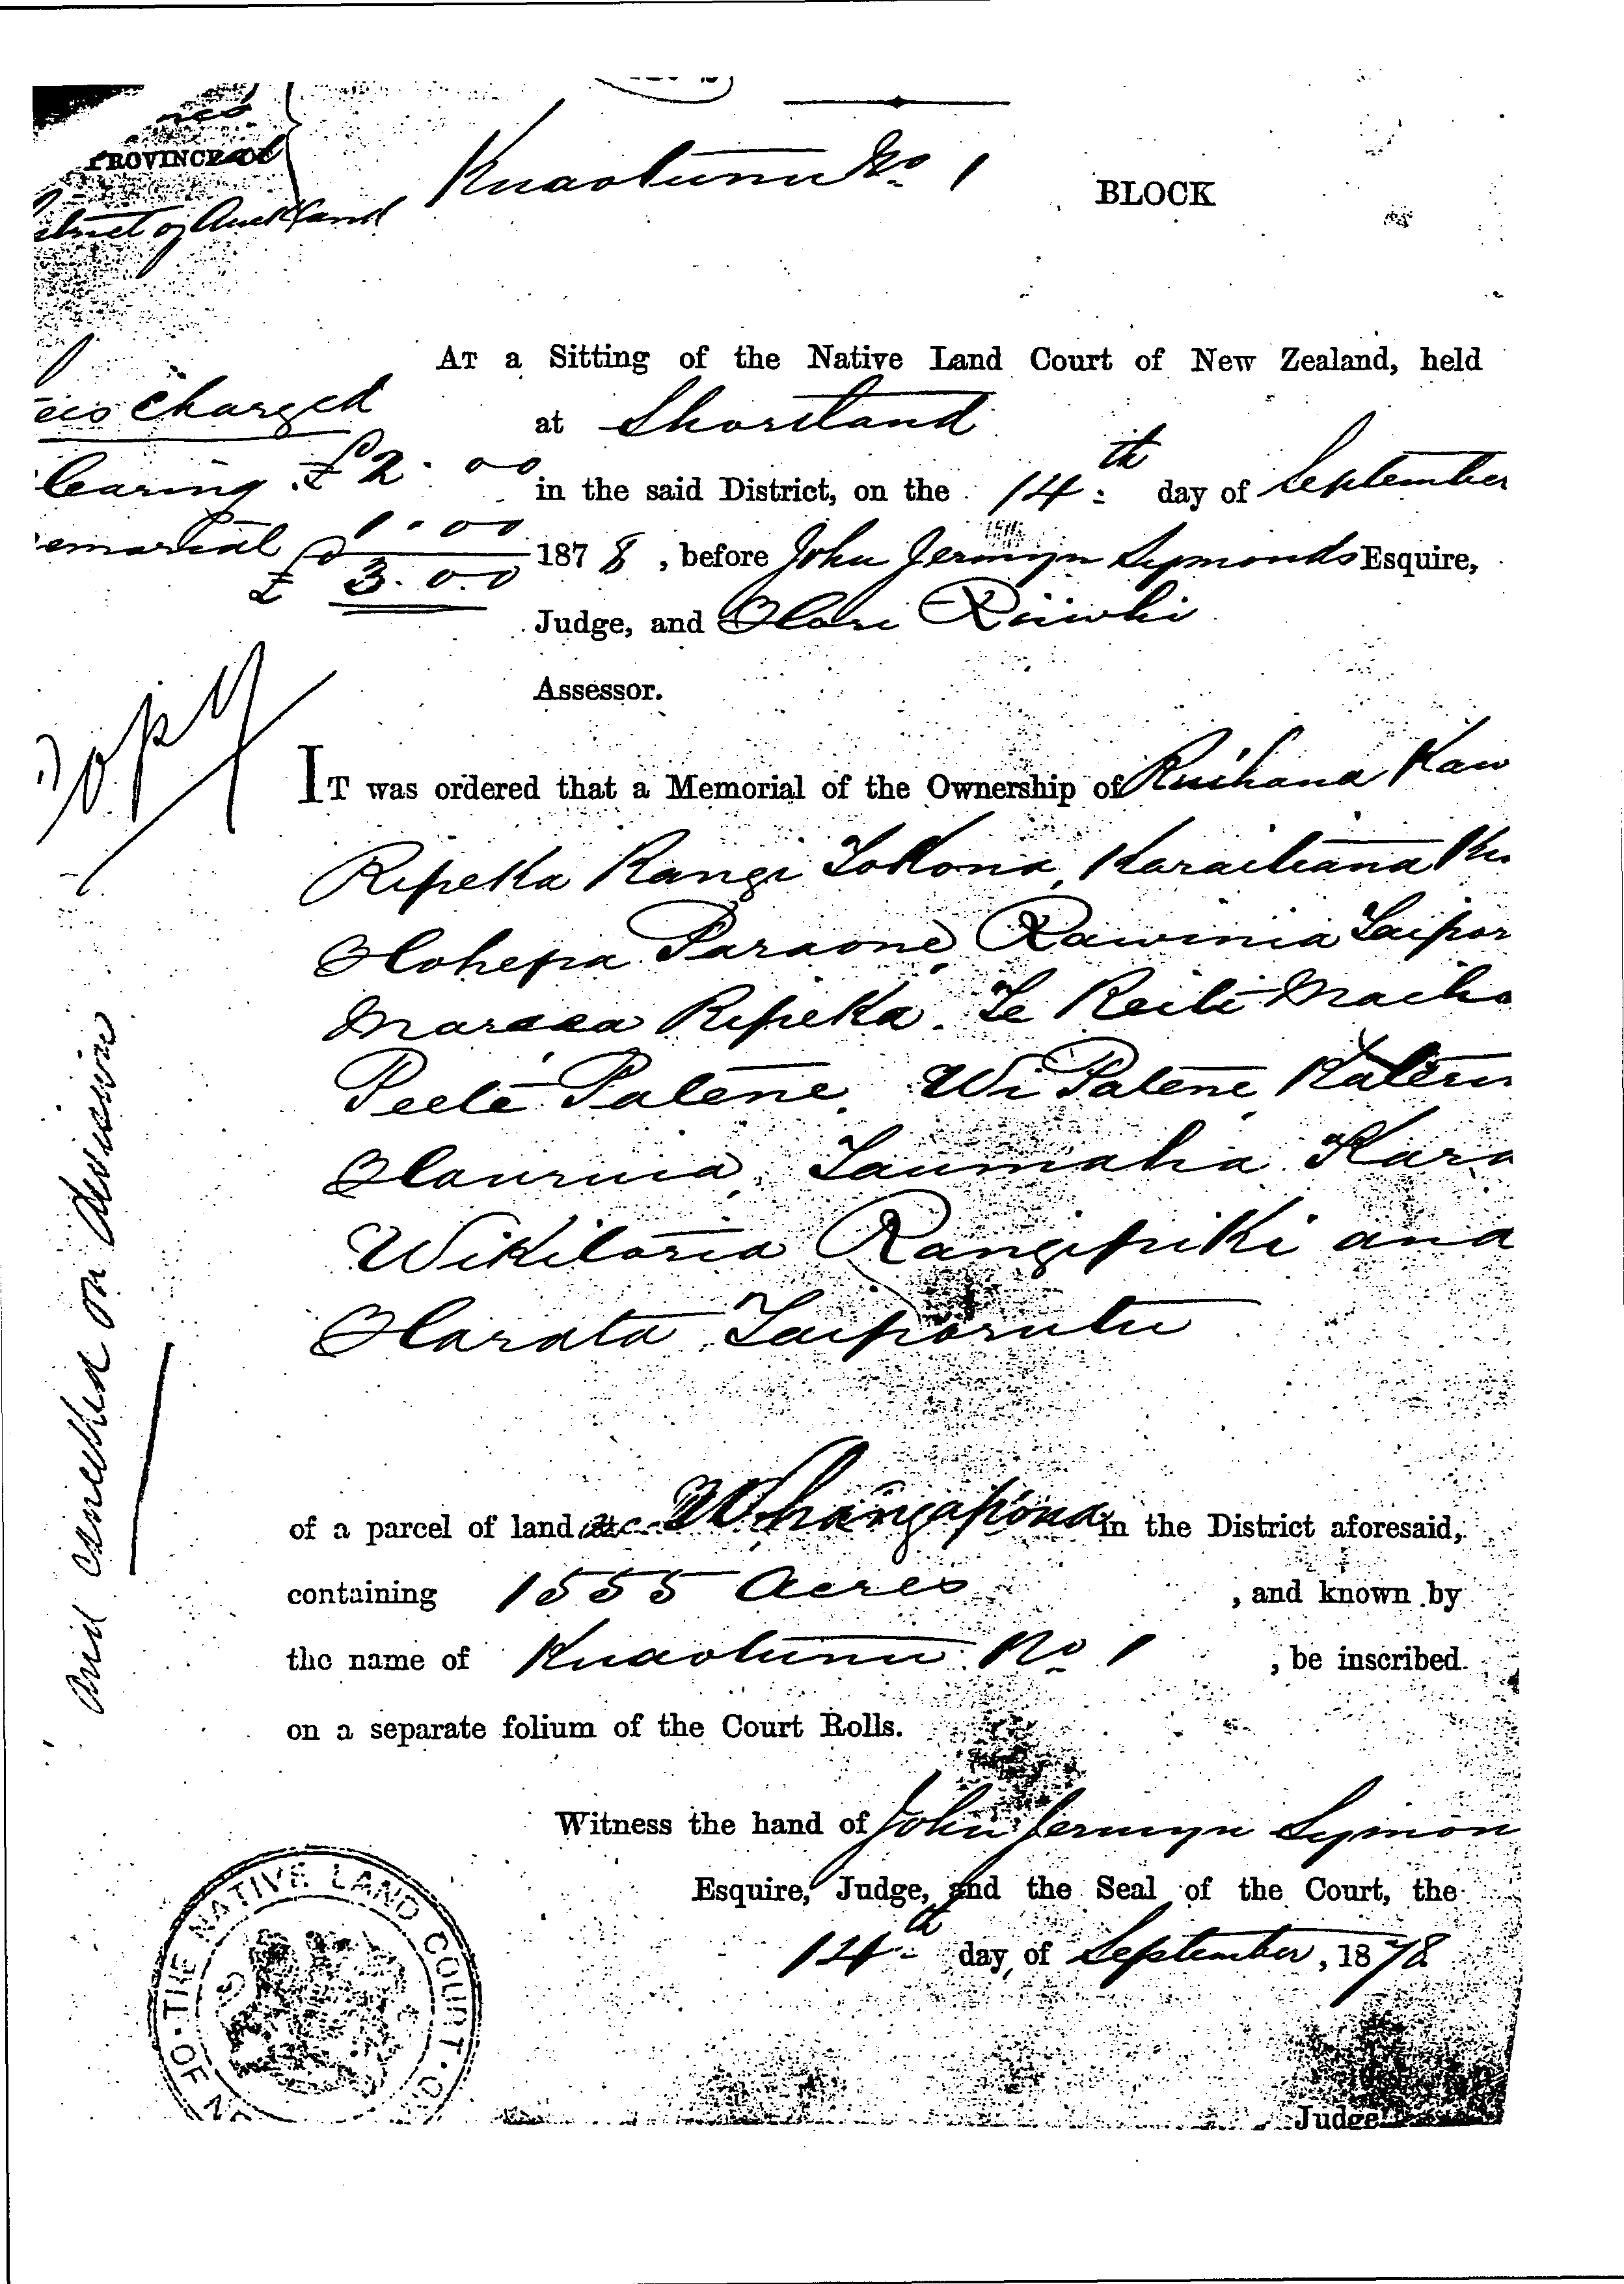 PROVINCE OF
District of Auckland
Kuaotunu No. 1 BLOCK
AT a Sitting of the Native Land Court of New Zealand, held
at Shortland
in the said District, on the 14th day of September
1878, before John Jermyn Symonds Esquire,
Judge, and Hori Riiwhi
Assessor.
charged
hearing £2.00
emorial 1.00
£ 3.0.0
Copy
IT was ordered that a Memorial of the Ownership of Ruihana Kaw
Ripeka Rangi Tokona, Karaitiana
Hohepa Paraone, Rawinia Taipor
Maraea Ripeka. Te Reiti Maiho
Peeti Patene, Wi Patene
Haurua, Taumaha Kara
Wikitoria Rangipiki and
Harata Taiporutu
of a parcel of land at Whangapoua in the District aforesaid,
containing 1555 Acres, and known by
the name of Kuaotunu No. 1, be inscribed
on a separate folium of the Court Rolls.
Witness the hand of John Jermyn Symon
Esquire, Judge, and the Seal of the Court, the
14th day of September, 1878
Judge
cancelled on
THE NATIVE LAND COURT OF